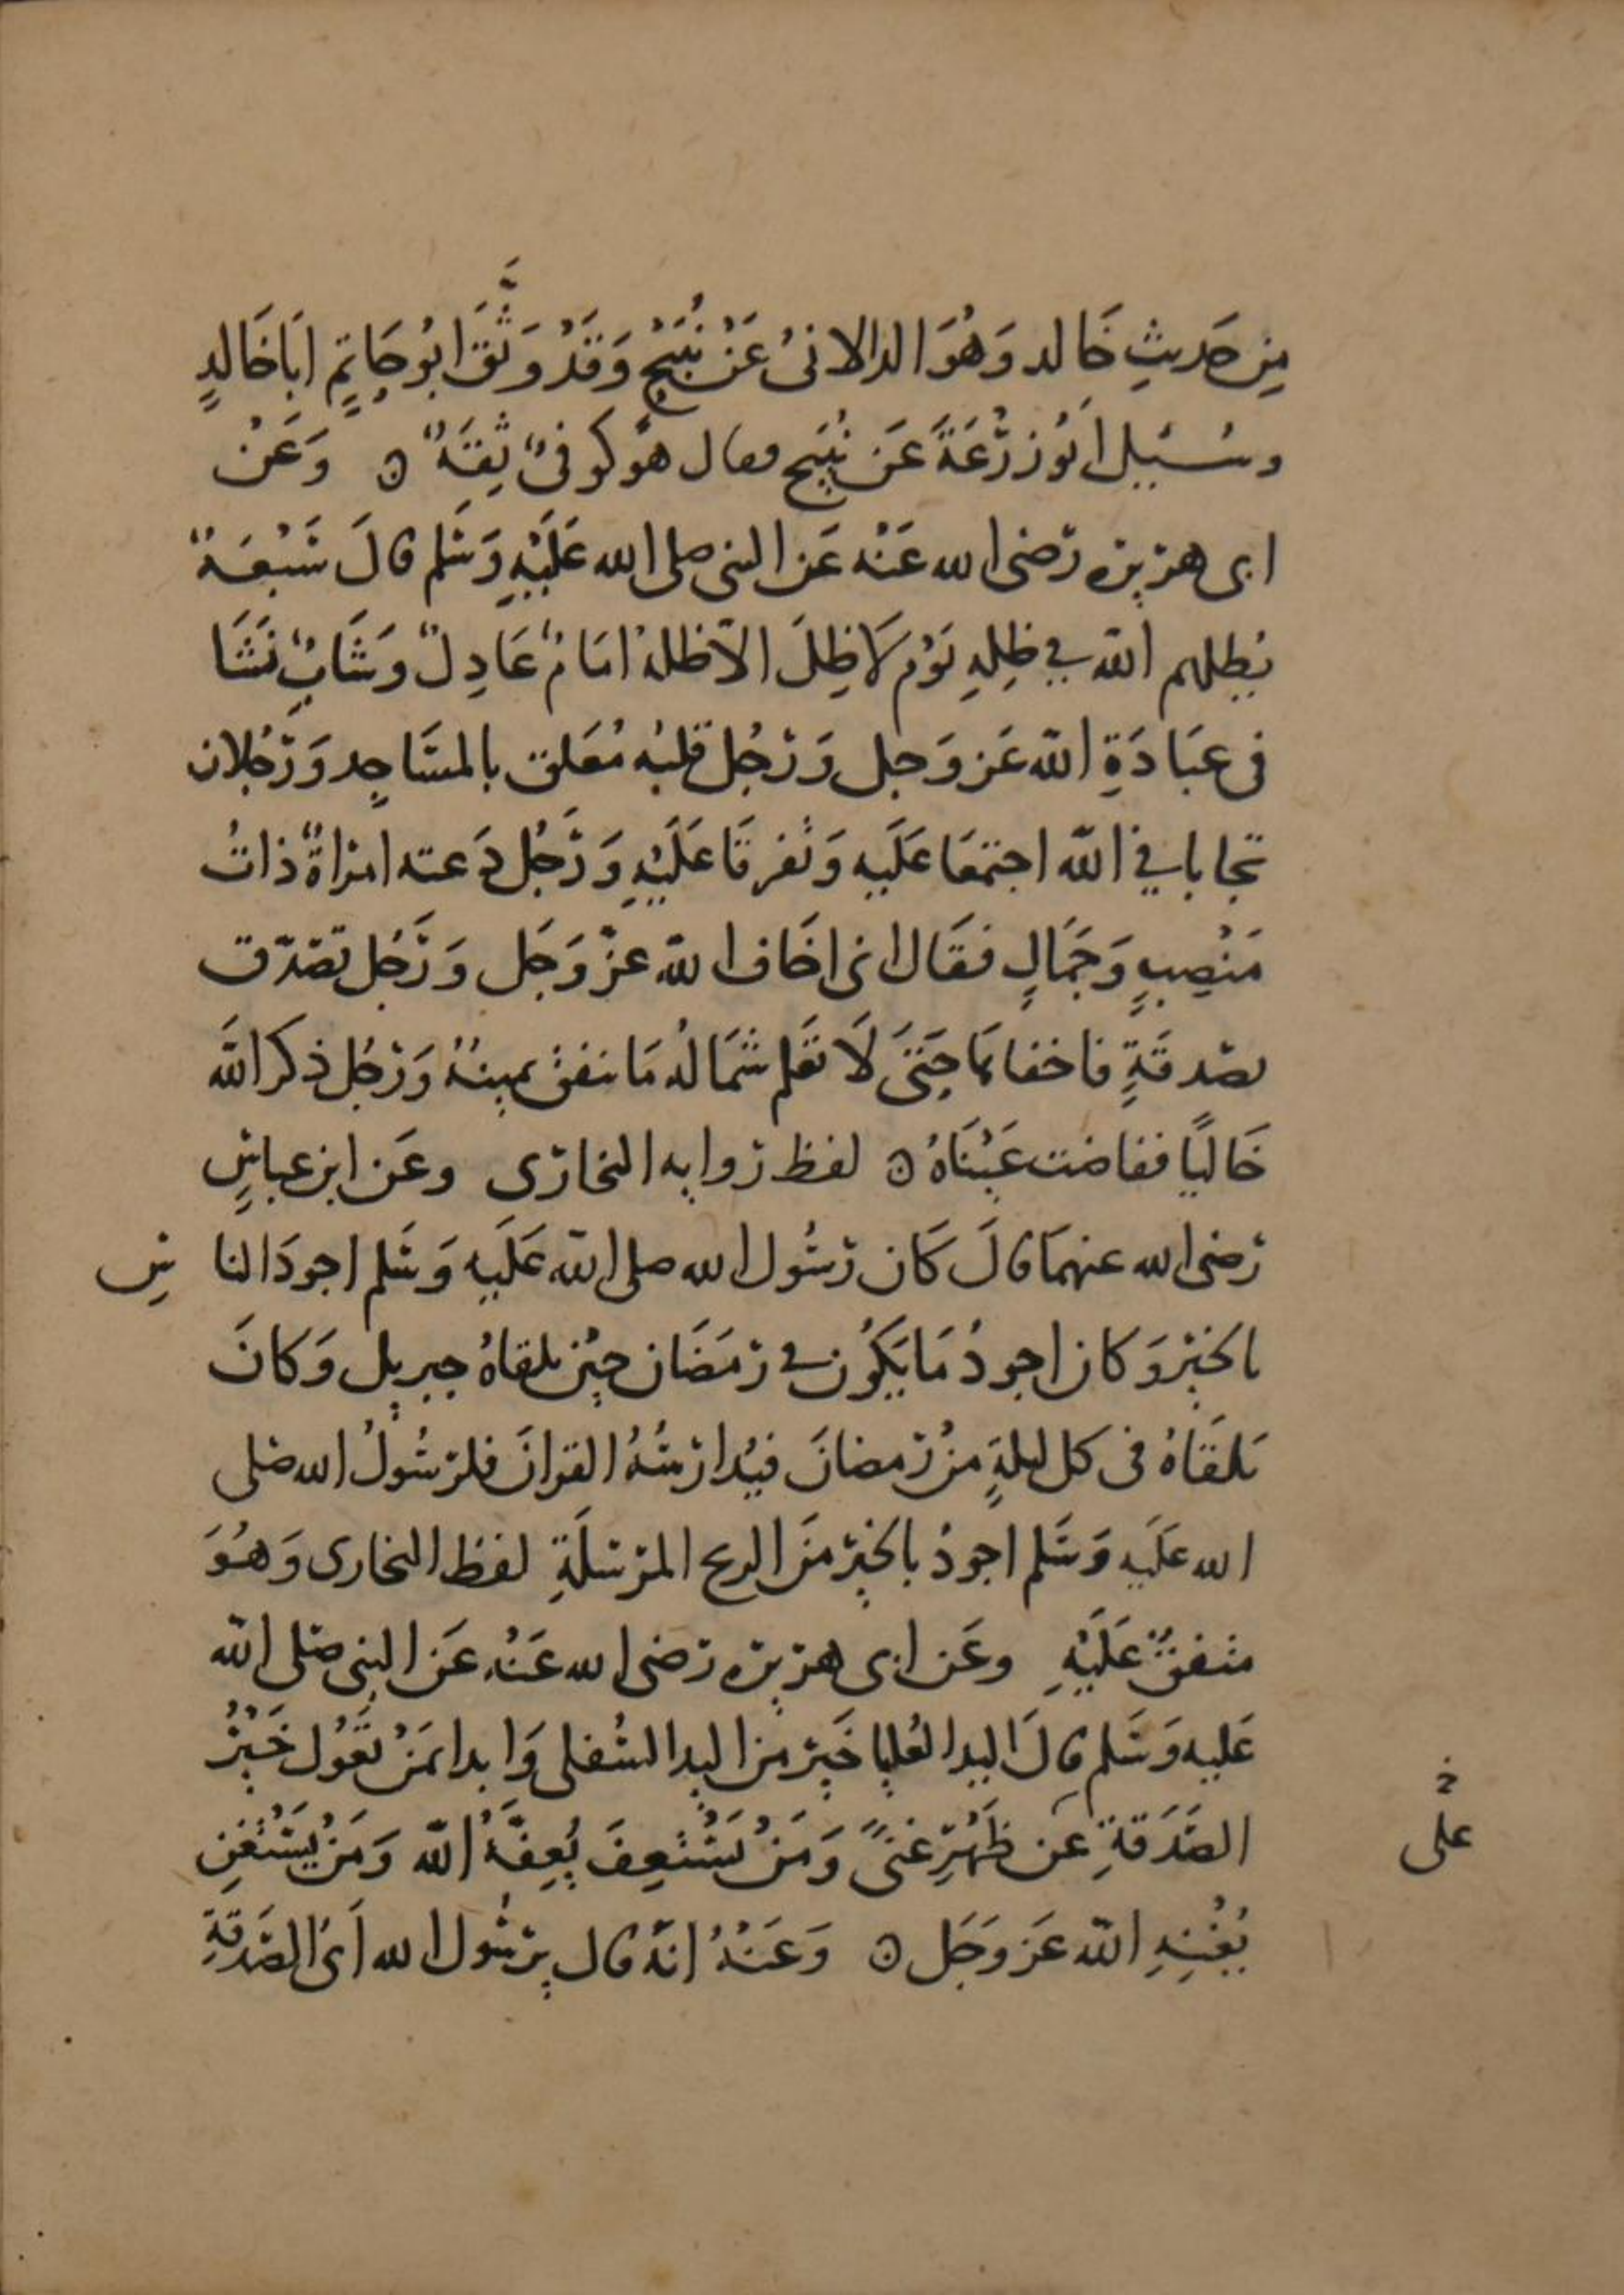 مِن حَديثِ خَالد وَهُوَ الدالانىُ عَنْ نُبَيْحٍ وَقَدْ وَثَّقَ ابُو حَاتِمٍ ابَا خَالدٍ
وسُئيل أبُو زُرْعَةَ عَن نُبَيح فقال هُو كوفىٌ ثِقَةٌ ن وَعَنْ
ابى هريره رَضى الله عَنْه عَن النبى صلى الله عَلَيْهِ وَسَلم قالَ سَبْعَةٌ
يُظِلهم الله في ظِلِهِ يَوْم لَا ظِلَ الاّ ظلهُ امَامٌ عَادِلٌ وَشَابٌ نَشَا
فى عبَادَةِ الله عَز وَجل وَرَجُل قلبُه مُعَلق بالمسَاجِد وَرَجُلان
تحابا في الله اجتمَعَا عَلَيه وَتفرقَا عَلَيْهِ وَرَجُل دَعته امراةٌ ذاتُ
مَنْصِبٍ وَجَمَالٍ فقَال انى اخَاف الله عزّ وَجَل وَرَجُل تصَدّق
بصَدقَةٍ فاخفاهَا حَتىَ لَا تعَلم شمَالهُ مَا تنفق يمينهُ وَرَجُل ذكر اللهَ
خَاليًا ففاضت عَيْنَاهُ ن لفظ روايه البخارى وعَن ابن عباسٍ
رَضى الله عنهمَا قالَ كَان رَسُول الله صلى الله عَلَيه وَسَلم اجودَ النا سِ
بالخيْر وَكان اجودُ مَا يَكُون في رمَضَان حِيْن يلقاهُ جبريل وَكانَ
يَلقَاهُ فى كل ليلةٍ منْ رَمضانَ فيُدارسُهُ القرانَ فلرسُولُ الله صَلى
الله عَلَيه وَسَلم اجودُ بالخير منَ الريح المرْسَلَةِ لفظ البخارى وَهُوَ
متفقٌ عَلَيْهِ وعَن ابى هريره رَضى الله عَنْه عَن النبى صَلى الله
عَليه وَسَلم قالَ اليد العُليا خَير من اليد السُفلى وَابدا بمَنْ تَعُول خَيْرُ
الصَدَقةِ عن ظَهْرِ غنىً وَمَنْ يَسْتَعِفَ يُعِفَّهُ الله وَمَنْ يَسْتَغنِ
يُغْنِهِ الله عَز وَجَل ن وَعَنْهُ انهُ قال يرسُول الله أىُ الصَدقةِ
خ
على